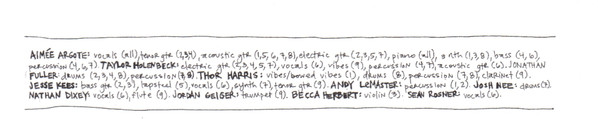 AIMÉE ARGOTE: vocals (all), tenor gtr (2,3,4), acoustic gtr (1,5,6,7,8), electric gtr (2,3,5,7), piano (all), synth (1,3,8), bass (4,6),
percussion (4,6,7) TAYLOR HOLENBECK: electric gtr (2,3,4,5,7), vocals (6), vibes (9), percussion (4,7), acoustic gtr (6). JONATHAN
FULLER: drums (2,3,4,8), percussion (7,8). THOR HARRIS: vibes/bowed vibes (1), drums (8), percussion (7,8), clarinet (9).
JESSE KEES: bass gtr (2,3), lapsteel (5), vocals (6), synth (7), tenor gtr (9). ANDY LEMASTER: percussion (1,2). JOSH MEE: drums (7)
NATHAN DIXEY: vocals (6), flute (9). JORDAN GEIGER: trumpet (9). BECCA HERBERT: violin (3). SEAN ROSNER: vocals (6).